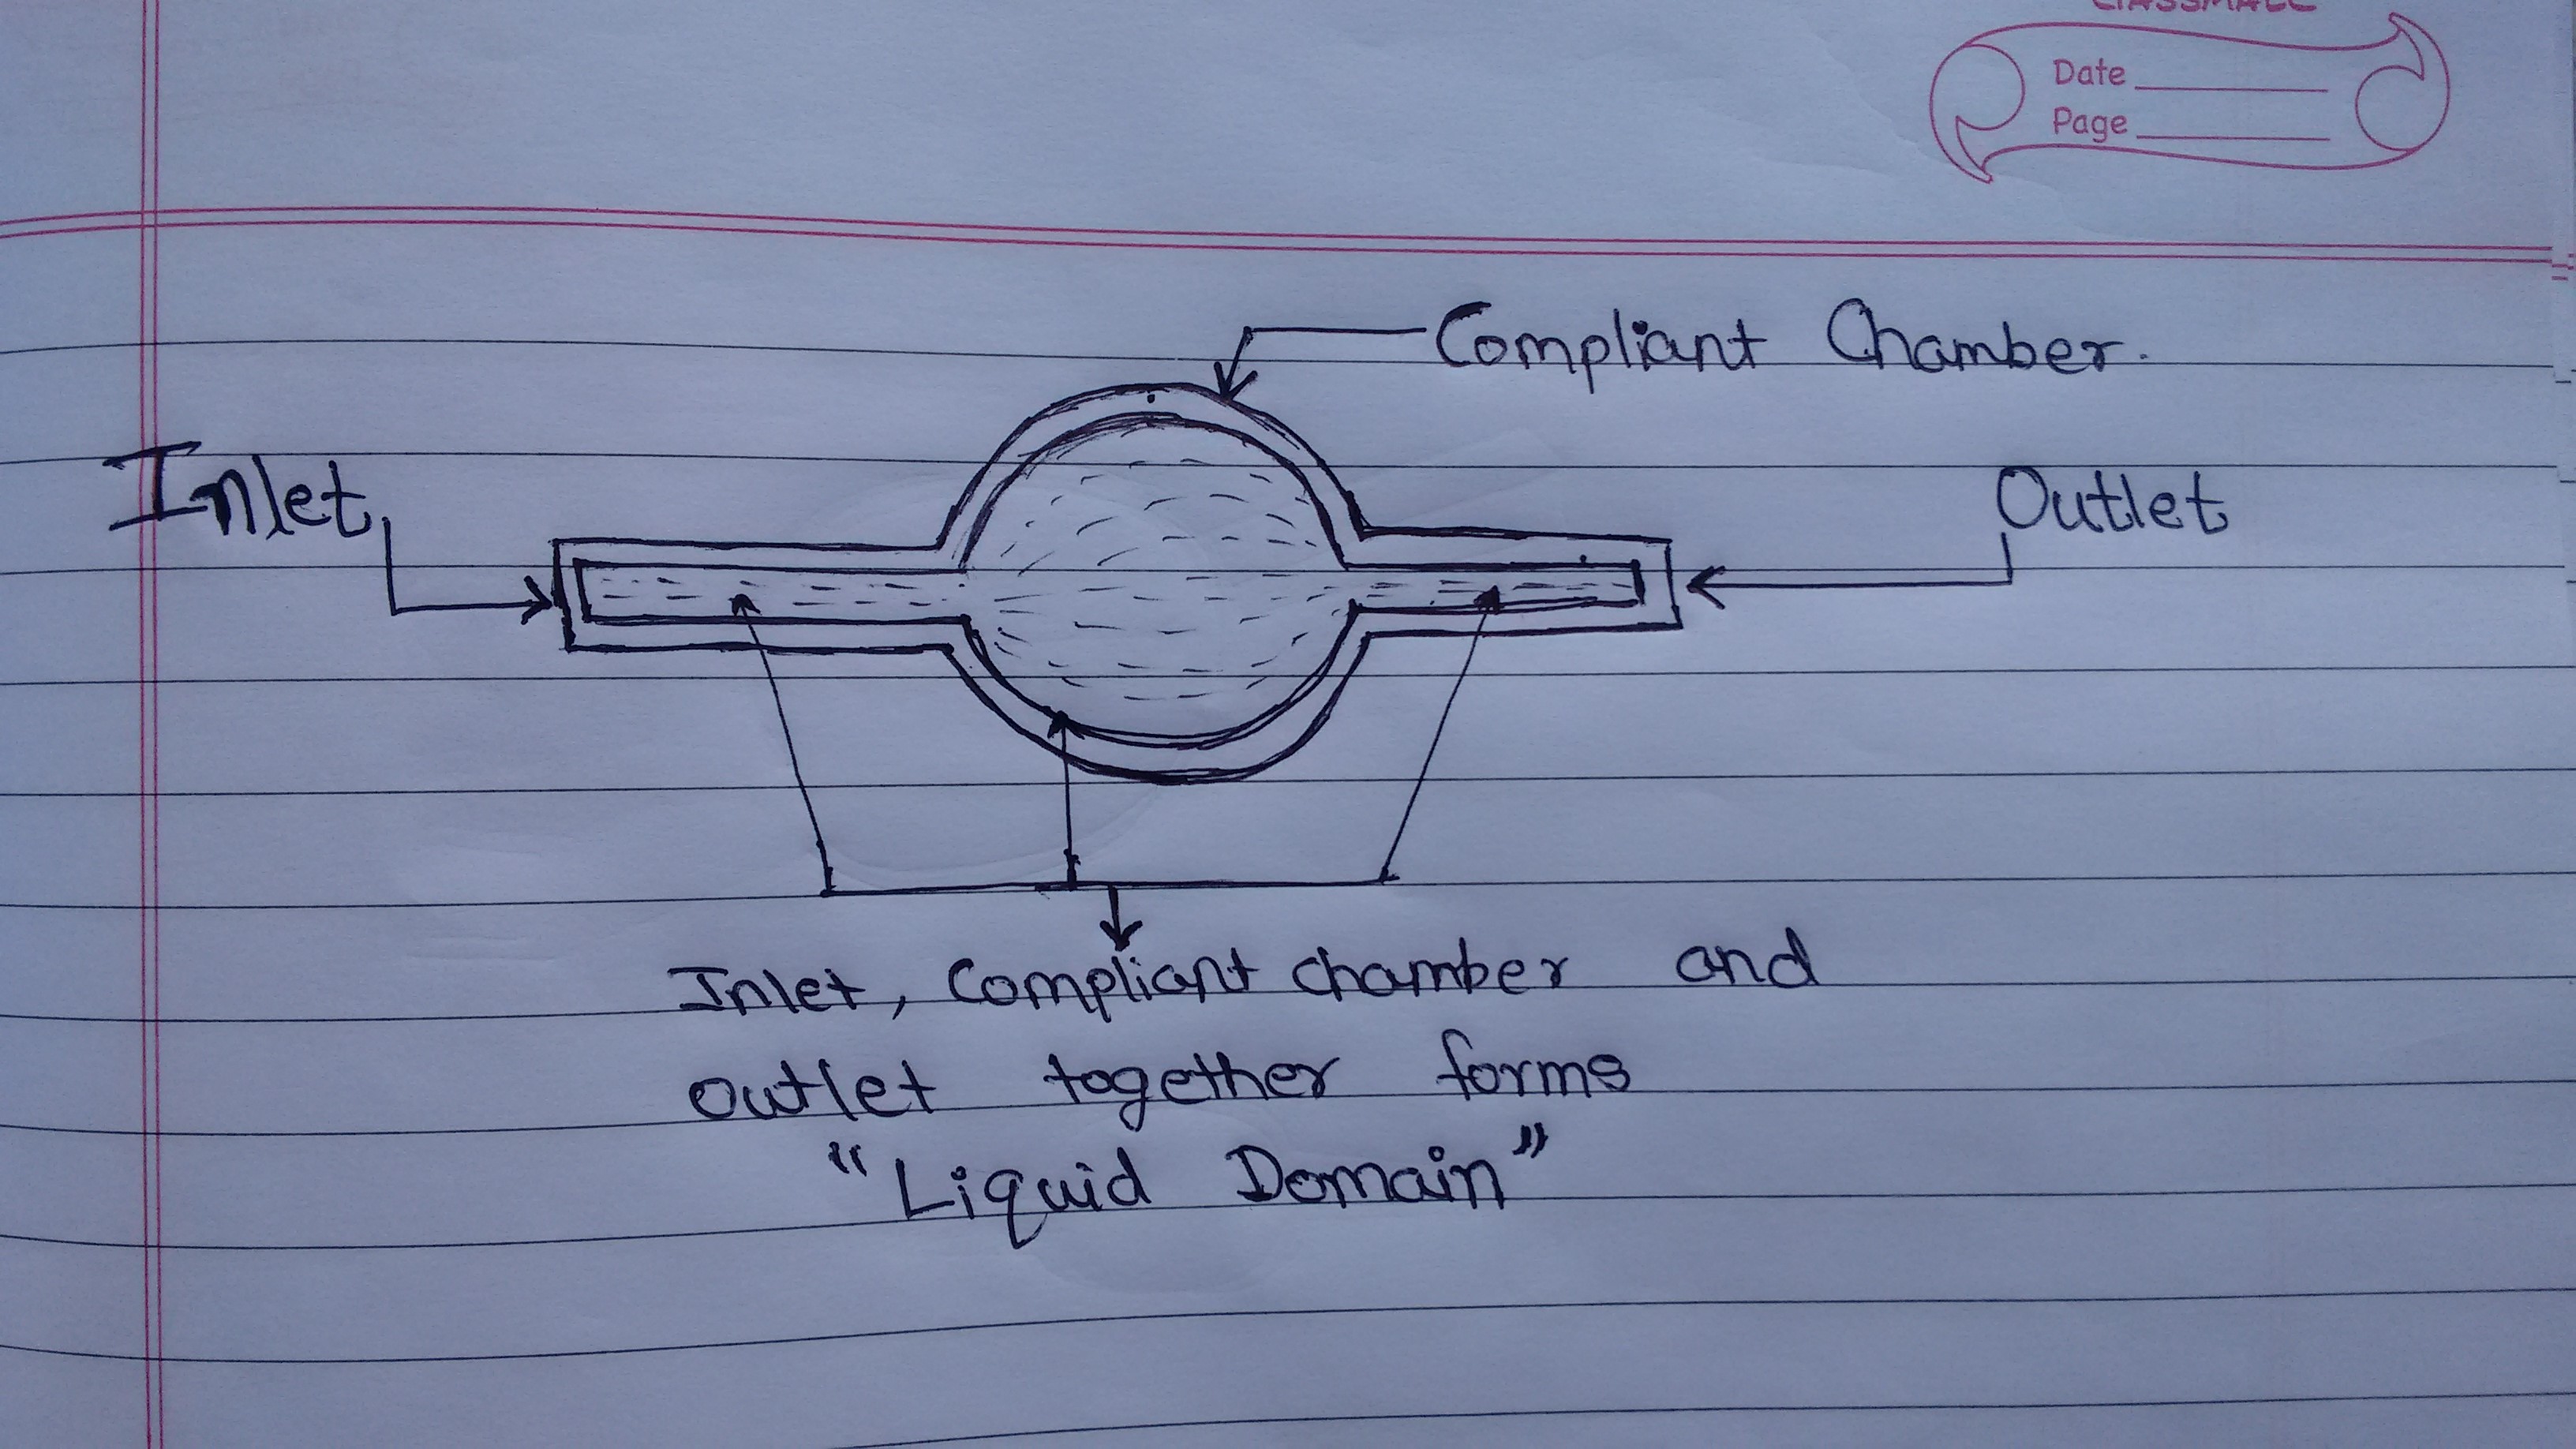 classmate
Date
Page
Compliant Chamber.
Inlet
Outlet
Inlet, Compliant chamber and
outlet together forms
"Liquid Domain"